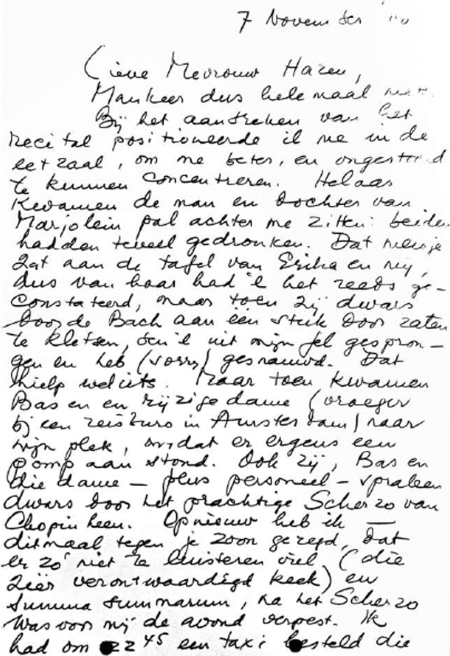 7 November
Lieve Mevrouw Hazeu,
Mankeer dus helemaal niet.
Bij het aantreken van het
recital positioneerde ik me in de
eetzaal, om me beter, en ongestoord
te kunnen concentreren. Helaas
kwamen de man en dochter van
Marjolein pal achter me zitten: beiden
hadden teveel gedronken. Dat meisje
zat aan de tafel van Erika en mij,
dus van haar had ik het reeds ge-
constateerd, maar toen zij dwars
door de Bach aan één stuk door zaten
te kletsen, ben ik uit mijn vel gespron-
gen en heb (sorry) gesnauwd. Dat
hielp wel iets. Maar toen kwamen
Bas en en rijzige dame (vroeger
bij een reisburo in Amsterdam) naar
mijn plek, omdat er ergens een
pomp aan stond. Ook zij, Bas en
die dame – plus personeel – spraken
dwars door het prachtige Scherzo van
Chopin heen. Opnieuw heb ik –
ditmaal tegen je zoon gezegd, dat
er zó niet te luisteren viel (die
zéér verontwaardigd keek) en
summa summarum, na het Scherzo
was voor mij de avond verpest. Ik
had om 22 45 een taxi besteld die